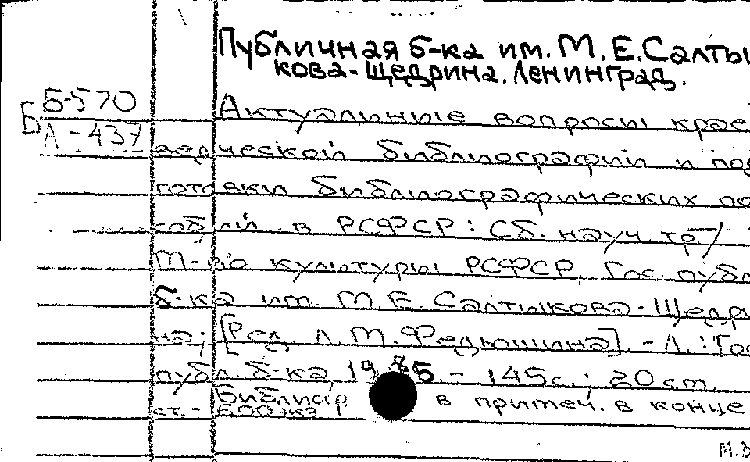 Публичная б-ка им. М. Е. Салты
кова-Щедрина. Ленинград.
Б-570
Б Л-437
Актуальные вопросы крае
ведческой библиографии и под
готовки библиографических по
собий в РСФСР: Сб. науч. тр /
М-во культуры РСФСР, Гос. публ
б-ка им. М. Е. Салтыкова-Щедри
на; [Ред. Л. М. Федюшина]. - Л.: Гос
публ. б-ка, 1975 - 145с.; 20 см.
Библиогр в примеч. в конце
ст. - 600 экз